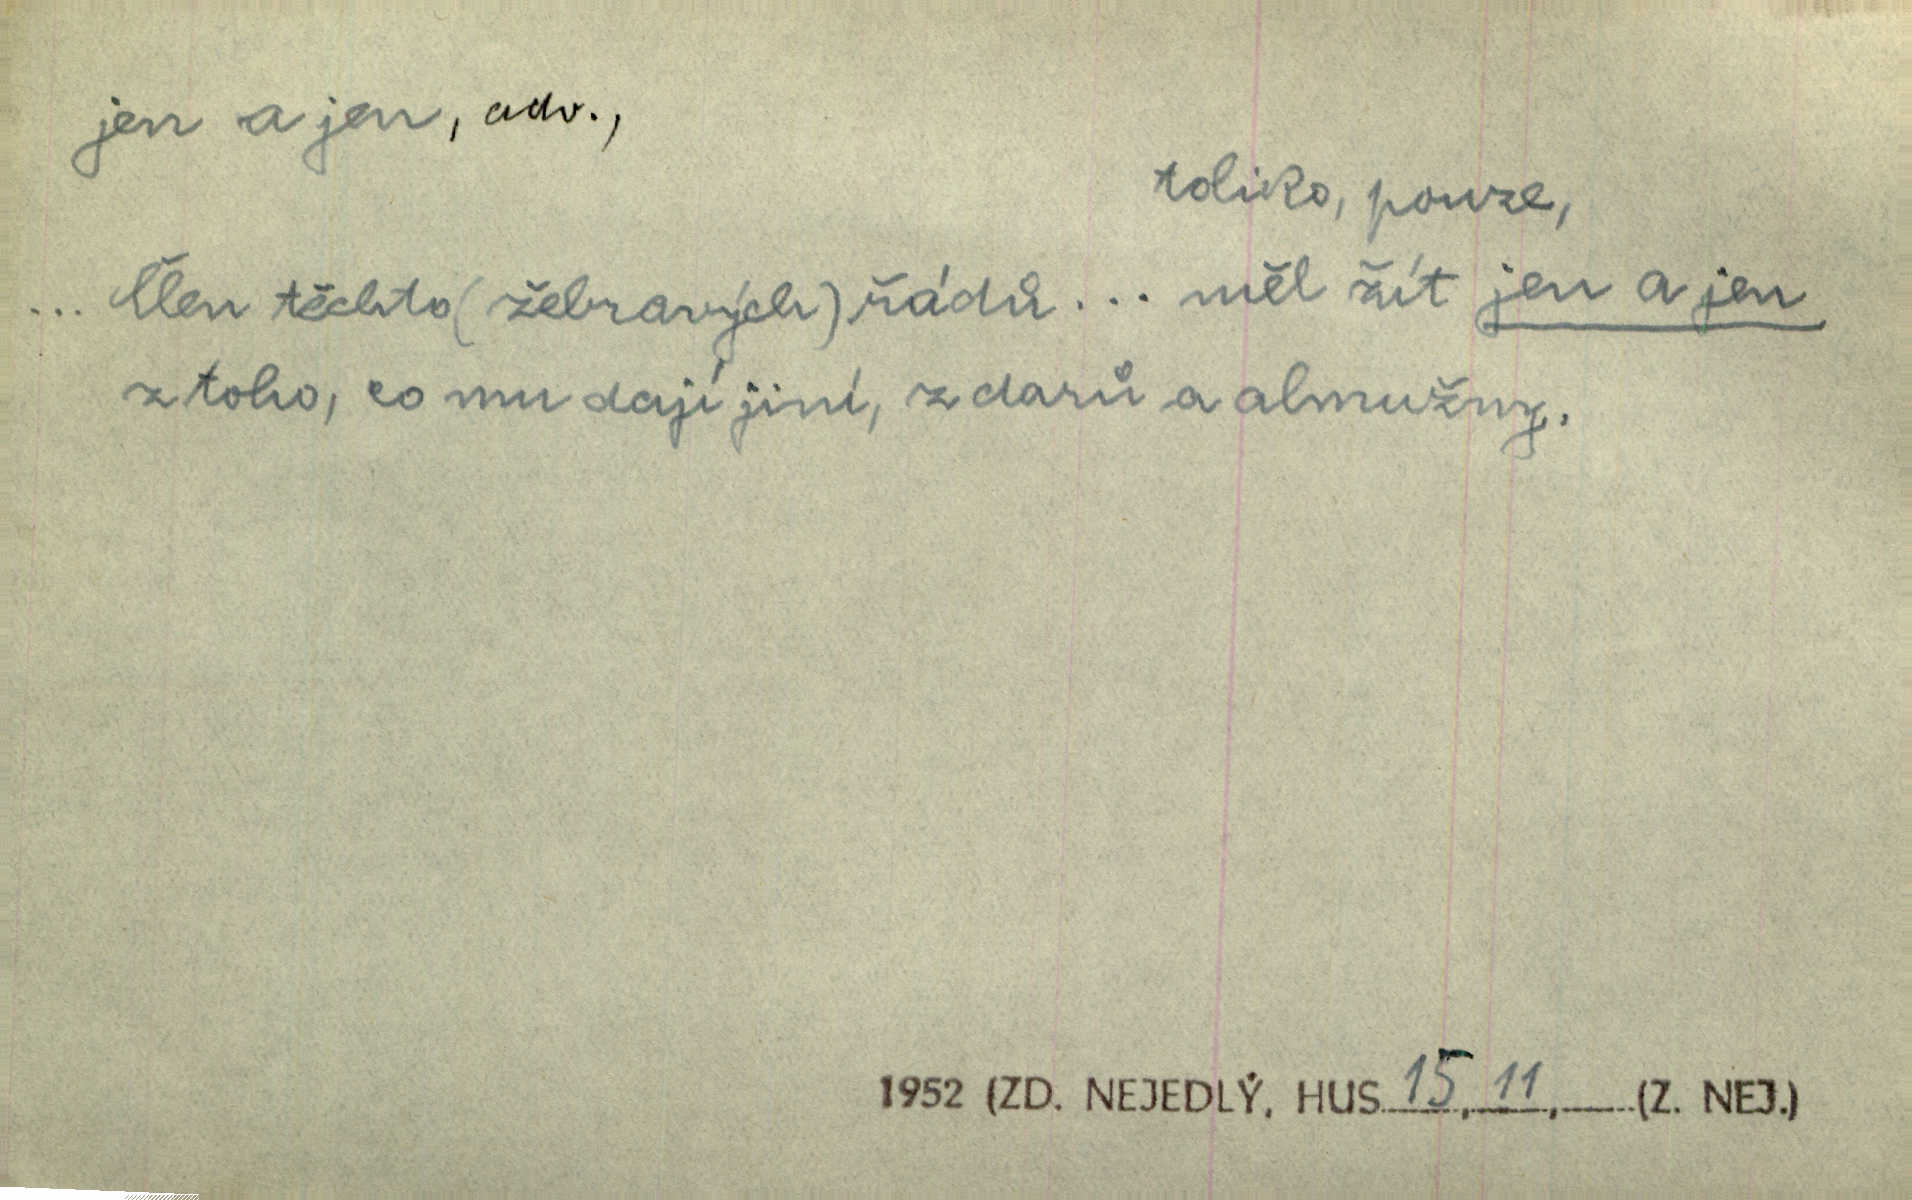 jen a jen, adv.,
toliko, pouze,
... Člen těchto (žebravých) řádů ... měl žít jen a jen
z toho, co mu dají jiní, z darů a almužny.
1952 (ZD. NEJEDLÝ, HUS 15, 11, (Z. NEJ.)